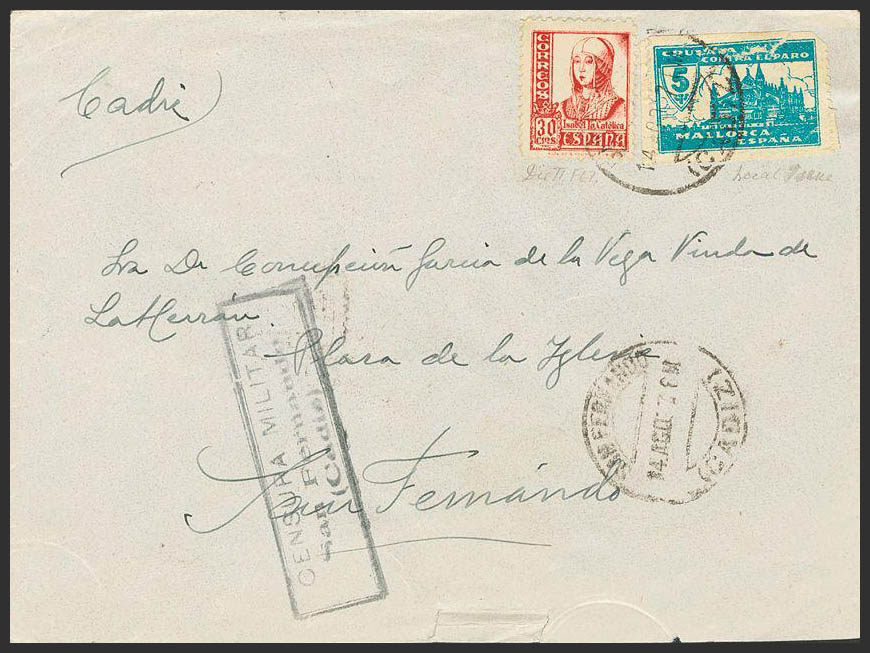 CORREOS
30 CTS
Isabel la Católica
ESPAÑA
CRUZADA
CONTRA EL PARO
5
MALLORCA
ESPAÑA
Cadiz
Local
Sra Da Concepción Garcia de la Vega Viuda de
La Herrán.
Plaza de la Iglesia
San Fernando
CENSURA MILITAR
San Fernando
(Cádiz)
SAN FERNANDO
14 AGO
(CADIZ)